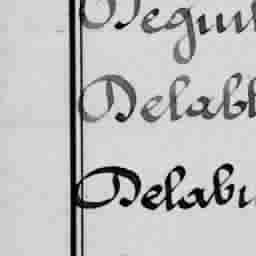 Degui
Delabl
Delabu